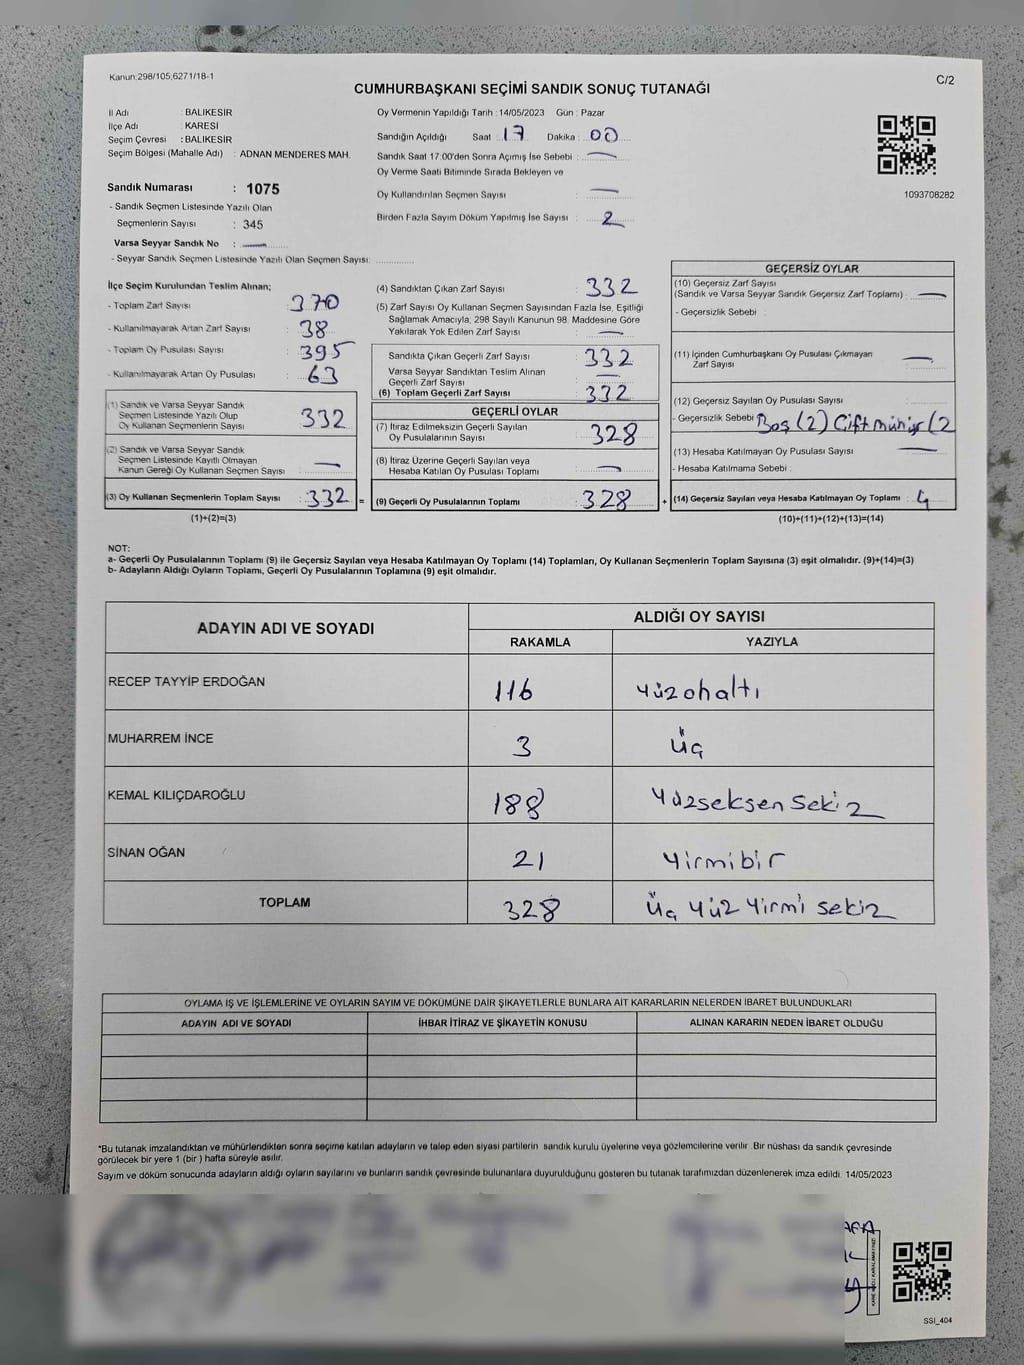 Kanun:298/105;6271/18-1
C/2
CUMHURBAŞKANI SEÇİMİ SANDIK SONUÇ TUTANAĞI
İl Adı : BALIKESİR
İlçe Adı : KARESİ
Seçim Çevresi : BALIKESİR
Seçim Bölgesi (Mahalle Adı) : ADNAN MENDERES MAH.
Sandık Numarası : 1075
- Sandık Seçmen Listesinde Yazılı Olan
Seçmenlerin Sayısı : 345
Varsa Seyyar Sandık No :
- Seyyar Sandık Seçmen Listesinde Yazılı Olan Seçmen Sayısı:
Oy Vermenin Yapıldığı Tarih :14/05/2023 Gün : Pazar
Sandığın Açıldığı Saat : 17 Dakika : 00
Sandık Saat 17:00'den Sonra Açımış İse Sebebi :
Oy Verme Saati Bitiminde Sırada Bekleyen ve
Oy Kullandırılan Seçmen Sayısı :
Birden Fazla Sayım Döküm Yapılmış İse Sayısı : 2
1093708282
İlçe Seçim Kurulundan Teslim Alınan;
- Toplam Zarf Sayısı : 370
- Kullanılmayarak Artan Zarf Sayısı : 38
- Toplam Oy Pusulası Sayısı : 395
- Kullanılmayarak Artan Oy Pusulası : 63
(1) Sandık ve Varsa Seyyar Sandık
Seçmen Listesinde Yazılı Olup
Oy Kullanan Seçmenlerin Sayısı : 332
(2) Sandık ve Varsa Seyyar Sandık
Seçmen Listesinde Kayıtlı Olmayan
Kanun Gereği Oy Kullanan Seçmen Sayısı :
(3) Oy Kullanan Seçmenlerin Toplam Sayısı : 332 =
(1)+(2)=(3)
(4) Sandıktan Çıkan Zarf Sayısı : 332
(5) Zarf Sayısı Oy Kullanan Seçmen Sayısından Fazla İse, Eşitliği
Sağlamak Amacıyla; 298 Sayılı Kanunun 98. Maddesine Göre
Yakılarak Yok Edilen Zarf Sayısı :
Sandıkta Çıkan Geçerli Zarf Sayısı : 332
Varsa Seyyar Sandıktan Teslim Alınan
Geçerli Zarf Sayısı :
(6) Toplam Geçerli Zarf Sayısı : 332
GEÇERLİ OYLAR
(7) İtiraz Edilmeksizin Geçerli Sayılan
Oy Pusulalarının Sayısı : 328
(8) İtiraz Üzerine Geçerli Sayılan veya
Hesaba Katılan Oy Pusulası Toplamı :
(9) Geçerli Oy Pusulalarının Toplamı : 328 +
GEÇERSİZ OYLAR
(10) Geçersiz Zarf Sayısı
(Sandık ve Varsa Seyyar Sandık Geçersiz Zarf Toplamı) :
- Geçersizlik Sebebi :
(11) İçinden Cumhurbaşkanı Oy Pusulası Çıkmayan
Zarf Sayısı :
(12) Geçersiz Sayılan Oy Pusulası Sayısı :
- Geçersizlik Sebebi Boş (2) Çift mühür (2
(13) Hesaba Katılmayan Oy Pusulası Sayısı :
- Hesaba Katılmama Sebebi :
(14) Geçersiz Sayılan veya Hesaba Katılmayan Oy Toplamı : 4
(10)+(11)+(12)+(13)=(14)
NOT:
a- Geçerli Oy Pusulalarının Toplamı (9) ile Geçersiz Sayılan veya Hesaba Katılmayan Oy Toplamı (14) Toplamları, Oy Kullanan Seçmenlerin Toplam Sayısına (3) eşit olmalıdır. (9)+(14)=(3)
b- Adayların Aldığı Oyların Toplamı, Geçerli Oy Pusulalarının Toplamına (9) eşit olmalıdır.
ADAYIN ADI VE SOYADI
ALDIĞI OY SAYISI
RAKAMLA YAZIYLA
RECEP TAYYİP ERDOĞAN 116 yüzonaltı
MUHARREM İNCE 3 üç
KEMAL KILIÇDAROĞLU 188 yüzseksen sekiz
SİNAN OĞAN 21 yirmibir
TOPLAM 328 üç yüz yirmi sekiz
OYLAMA İŞ VE İŞLEMLERİNE VE OYLARIN SAYIM VE DÖKÜMÜNE DAİR ŞİKAYETLERLE BUNLARA AİT KARARLARIN NELERDEN İBARET BULUNDUKLARI
ADAYIN ADI VE SOYADI İHBAR İTİRAZ VE ŞİKAYETİN KONUSU ALINAN KARARIN NEDEN İBARET OLDUĞU
*Bu tutanak imzalandıktan ve mühürlendikten sonra seçime katılan adayların ve talep eden siyasi partilerin sandık kurulu üyelerine veya gözlemcilerine verilir. Bir nüshası da sandık çevresinde
görülecek bir yere 1 (bir ) hafta süreyle asılır.
Sayım ve döküm sonucunda adayların aldığı oyların sayılarını ve bunların sandık çevresinde bulunanlara duyurulduğunu gösteren bu tutanak tarafımızdan düzenlenerek imza edildi. 14/05/2023
SSI_404